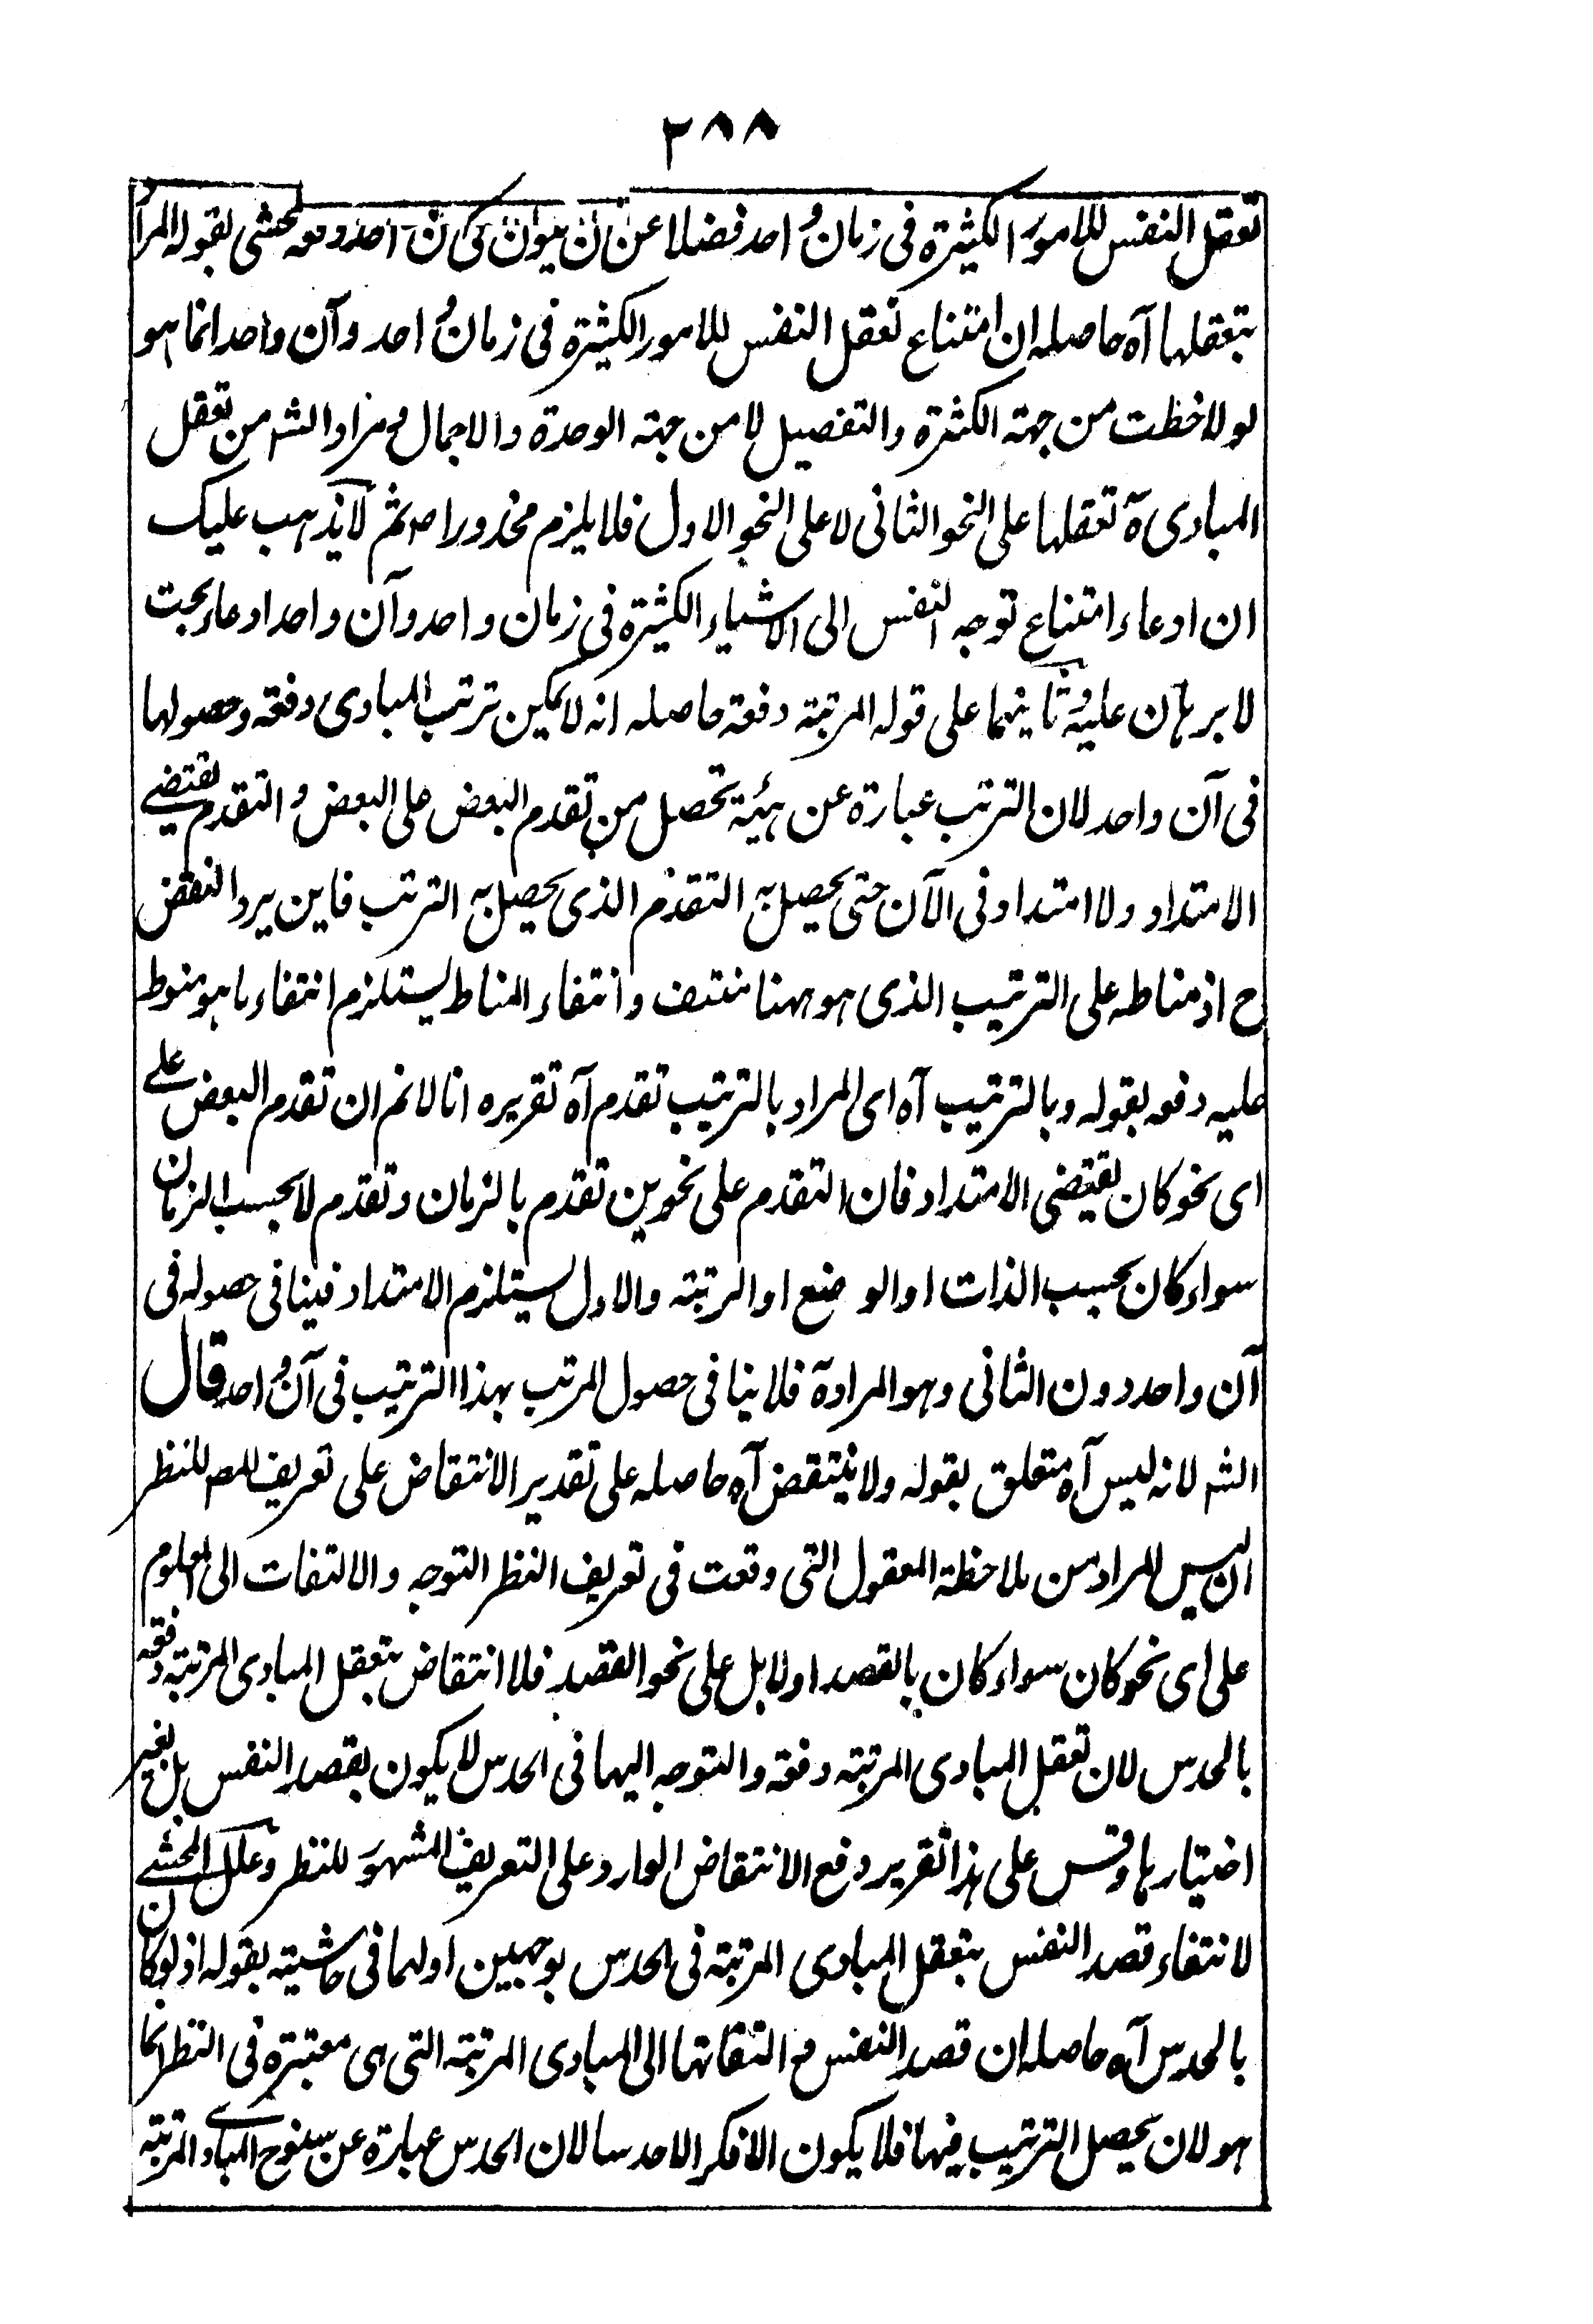 ٢٨٨
تعقل النفس للامور الكثيرة فى زمان واحد فضلا عن ان يكون فى آن واحد ودفعه المحشى بقوله المراد
بتعقلها آه حاصله ان امتناع تعقل النفس للامور الكثيرة فى زمان واحد وآن واحد انما هو
لو لاحظت من جهة الكثرة والتفصيل لا من جهة الوحدة والاجمال ومراد الشہ من تعقل
المبادى ۃ تعقلها على النحو الثانى لا على النحو الاول فلا يلزم محذور اصلا ثم لا يذهب عليك
ان ادعاء امتناع توجه النفس الى الاشياء الكثيرة فى زمان واحد وآن واحد ادعاء بحت
لا برهان عليه وثانيهما على قوله المرتبة دفعة حاصله انه لا يمكن ترتب المبادى دفعة وحصولها
فى آن واحد لان الترتب عبارة عن هيئة تحصل من تقدم البعض على البعض والتقدم يقتضى
الامتداد ولا امتداد فى الآن حتى يحصل به التقدم الذى يحصل به الترتب فاين يرد النقض
ح اذ مناطه على الترتيب الذى هو ههنا منتف وانتفاء المناط يستلزم انتفاء ما هو منوط
عليه دفعه بقوله وبالترتيب آه اى المراد بالترتيب تقدم آه تقريره انا لا نم ان تقدم البعض على
اى نحو كان يقتضى الامتداد فان التقدم على نحوين تقدم بالزمان وتقدم لا بحسب الزمان
سواء كان بحسب الذات او الوضع او الرتبة والاول يستلزم الامتداد فينافى حصوله فى
آن واحد دون الثانى وهو المراد ۃ فلا ينافى حصول المرتب بهذا الترتيب فى آن واحد قال
الشہ لانه ليس آه متعلق بقوله ولا ينتقض آه حاصله على تقدير الانتقاض على تعريف المصہ للنظر
ان ليس المراد من ملاحظة المعقول التى وقعت فى تعريف النظر التوجه والالتفات الى المعلوم
على اى نحو كان سواء كان بالقصد اولا بل على نحو القصد فلا انتقاض بتعقل المبادى المرتبة دفعة
بالحدس لان تعقل المبادى المرتبة دفعة والتوجه اليها فى الحدس لا يكون بقصد النفس بل بغير
اختيارها وقس على هذا تقرير دفع الانتقاض الوارد على التعريف المشهور للنظر وعلل المحشى
لانتفاء قصد النفس بتعقل المبادى المرتبة فى الحدس بوجهين اولهما فى حاشيته بقوله اذ لو كان
بالحدس آه حاصله ان قصد النفس مع التفاتها الى المبادى المرتبة التى هى معتبرة فى النظر انما
هو لان يحصل الترتيب فيها فلا يكون الا فكرا لا حدسا لان الحدس عبارة عن سنوح المبادى المرتبة